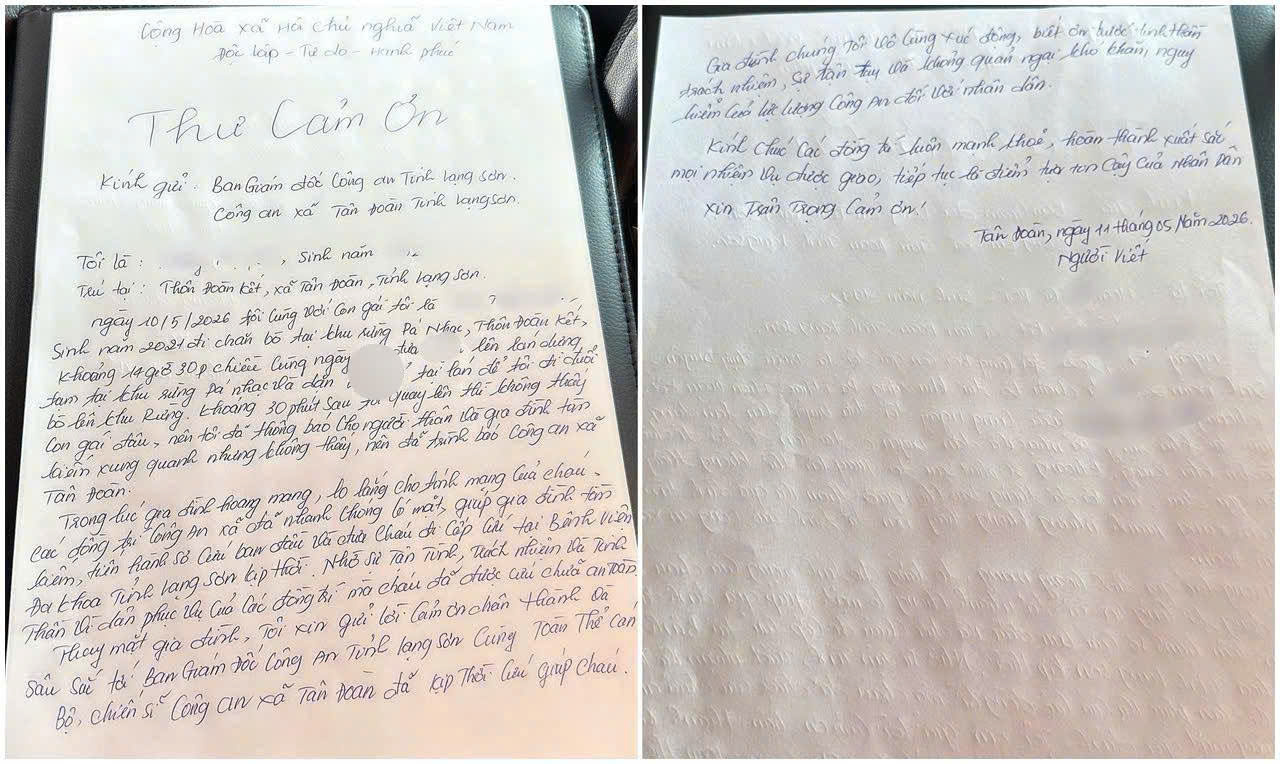 Cộng Hoà xã Hôi chủ nghĩa Việt Nam
Độc lập - Tự do - Hạnh phúc
Thư Cảm Ơn
Kính gửi: Ban Giám đốc Công an Tỉnh Lạng Sơn.
Công an xã Tân Đoàn Tỉnh Lạng Sơn.
Tôi là : , Sinh năm
Trú tại: Thôn Đoàn Kết, xã Tân Đoàn, Tỉnh Lạng Sơn.
ngày 10/5/2026 tôi Cùng với Con gái tôi là
Sinh năm 2021 đi chăn bò tại khu rừng Pá Nhạc, Thôn Đoàn Kết,
Khoảng 14 giờ 30p chiều Cùng ngày đưa lên lan dựng
tạm tại khu rừng Pá nhạc và dặn tại lán để tôi đi đuổi
bò lên khu Rừng. Khoảng 30 phút Sau quay lên thì không thấy
Con gái đâu, nên tôi đã thông báo Cho người thân và gia đình tìm
kiếm xung quanh nhưng không thấy, nên đã trình báo Công an xã
Tân Đoàn.
Trong lúc gia đình hoang mang, lo lắng cho tính mạng Của cháu.
Các đồng chí Công An xã đã nhanh chóng có mặt, giúp gia đình tìm
kiếm, tiến hành sơ Cứu ban đầu và đưa Cháu đi Cấp Cứu tại Bệnh Viện
Đa khoa Tỉnh Lạng Sơn kịp thời. Nhờ sự Tận Tình, Trách nhiệm và Tinh
Thần Vì dân phục vụ Của Các đồng chí mà cháu đã được cứu chữa an toàn.
Thay mặt gia đình, Tôi xin gửi lời Cảm ơn chân thành và
Sâu Sắc tới Ban Giám Đốc Công An Tỉnh Lạng Sơn Cùng Toàn Thể Cán
Bộ, chiến sĩ Công an xã Tân Đoàn đã kịp Thời Cứu giúp cháu.
Gia đình chúng Tôi Vô Cùng xúc động, biết ơn trước tinh thần
trách nhiệm, Sự tận tụy và không quản ngại khó khăn, nguy
hiểm Của lực lượng Công An đối Với nhân dân.
Kính Chúc Các đồng chí luôn mạnh khoẻ, hoàn thành xuất sắc
mọi nhiệm vụ được giao, tiếp tục là điểm tựa tin Cậy Của Nhân Dân
Xin Trân Trọng Cảm ơn!
Tân Đoàn, ngày 11 tháng 05 Năm 2026.
Người Viết